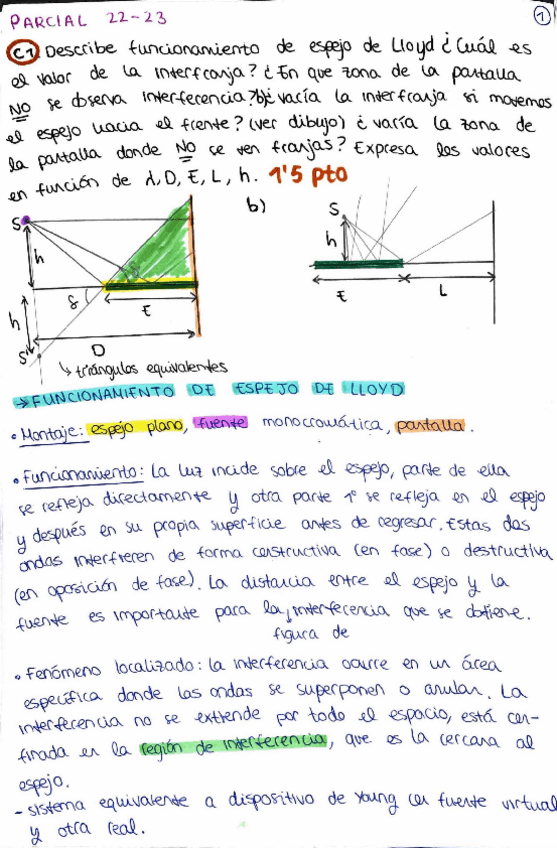 PARCIAL 22-23
1
C.1 Describe funcionamiento de espejo de Lloyd ¿Cuál es
el valor de la interfranja? ¿En que zona de la pantalla
NO se observa interferencia? b) ¿varía la interfranja si movemos
el espejo hacia el frente? (ver dibujo) ¿varía la zona de
la pantalla donde NO se ven franjas? Expresa los valores
en función de λ, D, E, L, h. 1'5 pto
b)
S
h
δ
E
h
S'
D
S
h
E
L
↳ triángulos equivalentes
→ FUNCIONAMIENTO DE ESPEJO DE LLOYD
• Montaje: espejo plano, fuente monocromática, pantalla.
• Funcionamiento: La luz incide sobre el espejo, parte de ella
se refleja directamente y otra parte 1º se refleja en el espejo
y después en su propia superficie antes de regresar. Estas dos
ondas interfieren de forma constructiva (en fase) o destructiva
(en oposición de fase). La distancia entre el espejo y la
fuente es importante para la interferencia que se obtiene.
figura de
• Fenómeno localizado: la interferencia ocurre en un área
específica donde las ondas se superponen o anulan. La
interferencia no se extiende por todo el espacio, está con-
finada en la región de interferencia, que es la cercana al
espejo.
- sistema equivalente a dispositivo de Young con fuente virtual
y otra real.